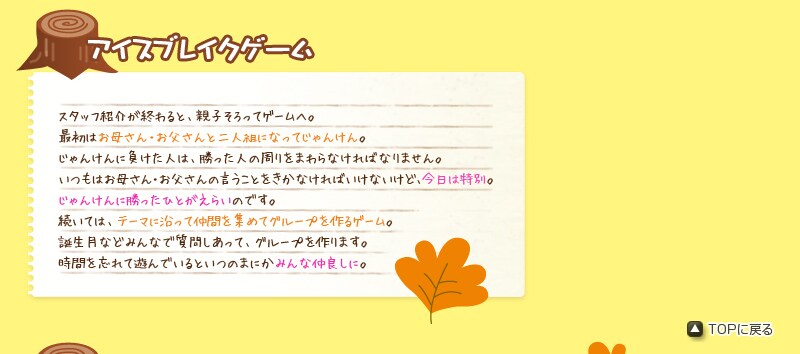 アイスブレイクゲーム
スタッフ紹介が終わると、親子そろってゲームへ。
最初はお母さん・お父さんと二人組になってじゃんけん。
じゃんけんに負けた人は、勝った人の周りをまわらなければなりません。
いつもはお母さん・お父さんの言うことをきかなければいけないけど、今日は特別。
じゃんけんに勝ったひとがえらいのです。
続いては、テーマに沿って仲間を集めてグループを作るゲーム。
誕生月などみんなで質問しあって、グループを作ります。
時間を忘れて遊んでいるといつのまにかみんな仲良しに。
TOPに戻る